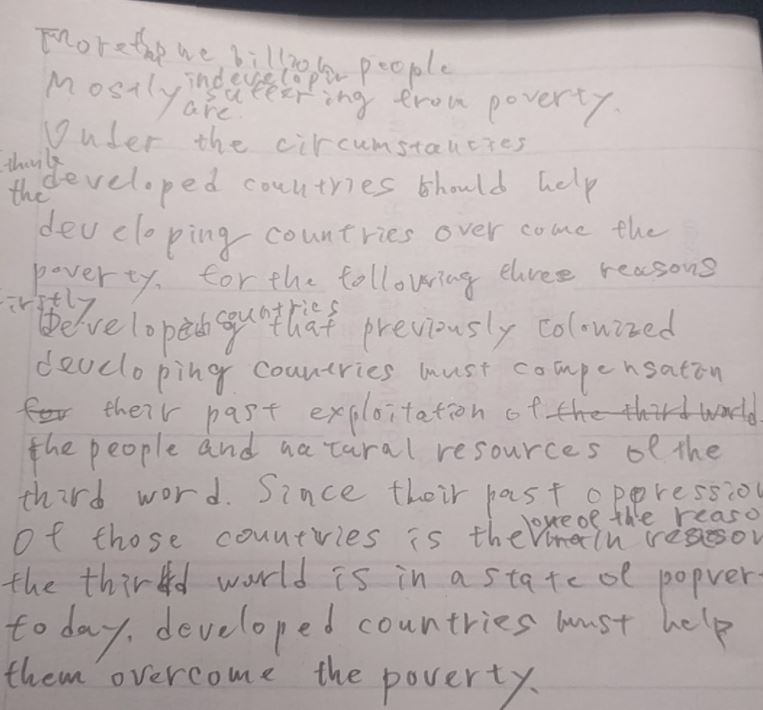 More than one billion people
Mostly in developin suffering from poverty.
are
Under the circumstances
think
the developed countries should help
developing countries over come the
poverty. for the following three reasons
irstly
Developed countries that previously colonized
developing countries must compensation
for their past exploitation of the third world
the people and natural resources of the
third word. Since their past oppressio
Of those countries is the one of the reaso
main reason
the third world is in a state of popver
today, developed countries must help
them overcome the poverty.